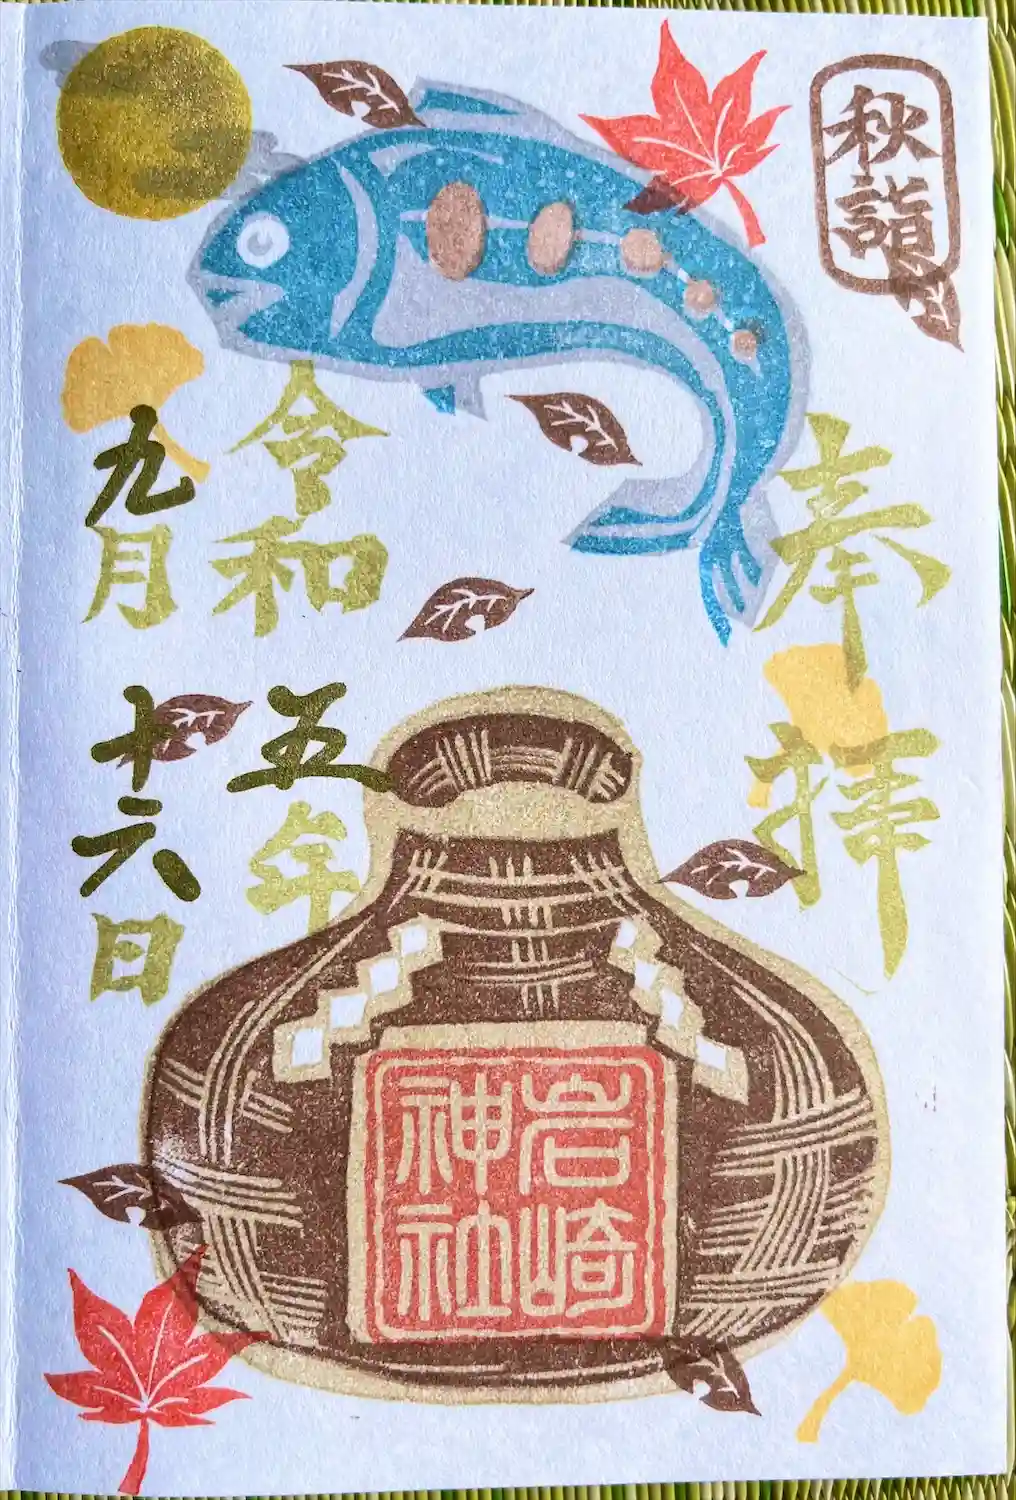 秋詣
奉拝
岩崎
神社
令和五年
九月十六日